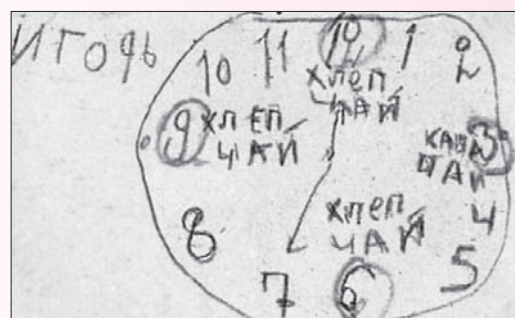 ИГОРЬ
10 11 12 1 2
ХЛЕП
ЧАЙ
9 ХЛЕП
ЧАЙ
КАША 3
ЧАЙ
4
ХЛЕП
ЧАЙ
8 5
7 6